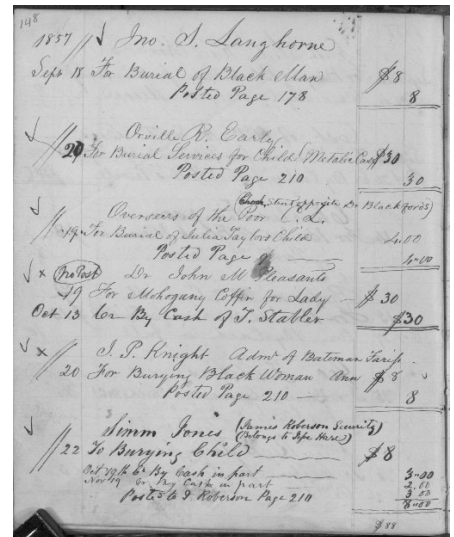 148
1857 // Jno. S. Langhorne
Sept 18 For Burial of Black Man $8
Posted Page 178 8
Orville R. Early
// 20 For Burial Services for Child (Metalic Case) $30
Posted Page 210 30
Overseers of the Poor C. L. (Church Street opposite Dr Blackfords)
// 19 For Burial of Julia Taylors Child 4.00
Posted Page 4.00
x (No Post) Dr John M Pleasants
19 For Mohogany Coffin for Lady $30
Oct 13 Cr By Cash of T. Stabler $30
x J. P. Knight Admr of Bateman
// 20 For Burying Black Woman Ann $8
Posted Page 210 8
Simm Jones (James Roberson Security)
(Belongs to Hare)
// 22 To Burying Child $8
Oct 12th Cr By Cash in part 3.00
Nov 19 Cr By Cash in part 2.00
3.00
Posted to J Roberson Page 210 8.00
$88